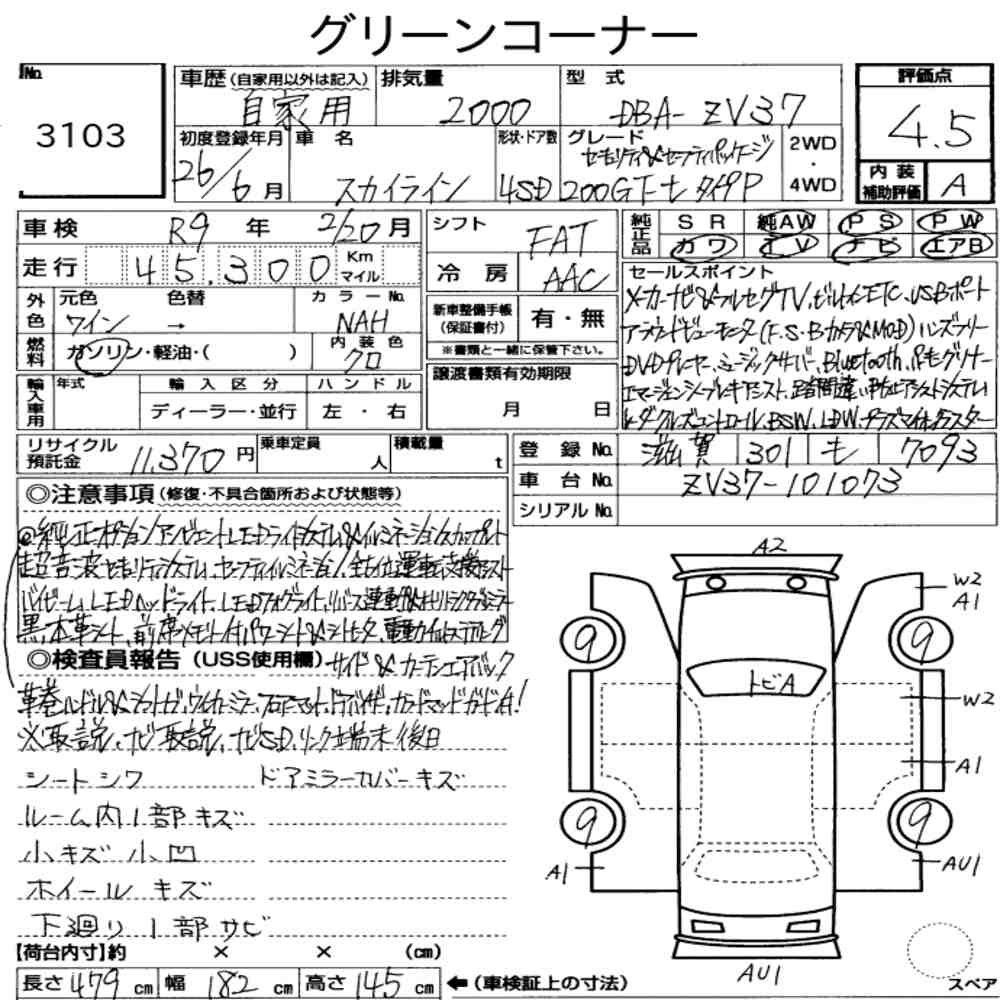 グリーンコーナー
No. 3103
車歴 (自家用以外は記入) 自家用
排気量 2000
型式 DBA-ZV37
評価点 4.5
内装補助評価 A
初度登録年月 26/6月
車名 スカイライン
形状・ドア数 4SD
グレード セキュリティ&セーフティパッケージ
200GT-t タイプP
2WD・4WD
車検 R9年 2/20月
走行 45,300 Km マイル
シフト FAT
冷房 AAC
純正品 SR 純AW PS PW
カワ TV ナビ エアB
外色 元色 ワイン 色替 →
カラーNo. NAH
燃料 ガソリン・軽油・( )
内装色 クロ
新車整備手帳(保証書付) 有・無
※書類と一緒に保管下さい。
輸入車用 年式 輸入区分 ディーラー・並行 ハンドル 左・右
譲渡書類有効期限 月 日
セールスポイント
メーカーナビ&フルセグTV、ビルトインETC、USBポート
アラウンドビューモニタ(F.S.Bカメラ&MOD)ハンズフリー
DVDプレーヤー、ミュージックサーバー、Bluetooth、
エマージェンシーブレーキアシスト、踏間違い
コントロール、BSW、LDW、プラズマクラスター
リサイクル預託金 11,370円
乗車定員 人
積載量 t
登録No. 滋賀 301 も 7093
車台No. ZV37-101073
シリアルNo.
◎注意事項(修復・不具合箇所および状態等)
◎純正オプション アンビエントLEDライトシステム&イルミネーション
超音波セキュリティシステム、セーフティイルミネーション、全方位運転支援アシスト
ハイビーム、LEDヘッドライト、LEDフォグライト、リバース連動
黒本革シート、前席メモリー付パワーシート&シートヒータ、電動
◎検査員報告(USS使用欄) サイド&カーテンエアバック
革巻ハンドル&シフトノブ、ウィンカーミラー、フロアマット、ドアバイザー
※取説、ナビ取説、ナビSD、リンク端末後日
シートシワ ドアミラーカバーキズ
ルーム内1部キズ
小キズ 小凹
ホイールキズ
下廻り1部サビ
【荷台内寸】約 × × (cm)
長さ 479 cm 幅 182 cm 高さ 145 cm ←(車検証上の寸法)
A2
W2
A1
9
9
トビA
W2
A1
9
9
A1
AU1
AU1
スペア